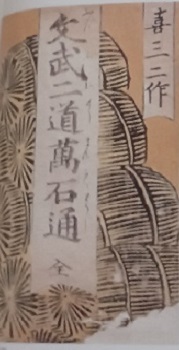 喜三二作
文武二道萬石通
全